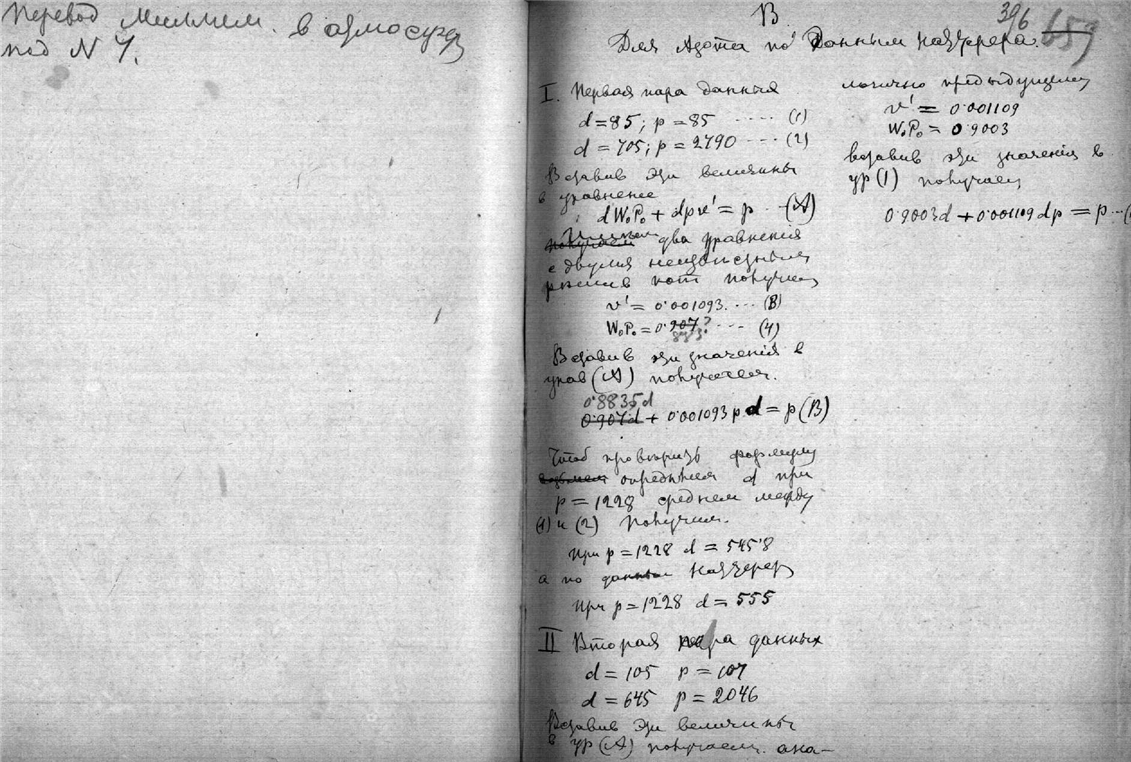 Перевод миллим. в атмосфер
под N 7.
396
659
B
Для Азота по Данным Наттерера.
I. Первая пара данных
d=85; p=85 ···· (1)
d=705; p=2790 ···· (2)
Вставив эти величины
в уравнение
dW₀P₀ + dpv' = p ··(A)
два уравнения
с двумя неизвестными
решив кот получаем
v' = 0.001093.··· (B)
W₀P₀ = 0.907? ··· (4)
Вставив эти значенія в
урав (A) получается.
0.8835d
0.907d + 0.001093pd = p (B)
Чтоб проверить формулу
возьмем определяем d при
p = 1228 среднем между
(1) и (2) Получим.
При p=1228 d = 545.8
а по данным Наттерер
При p=1228 d = 555
II Вторая пара данных
d = 105 p = 107
d = 645 p = 2046
Вставив эти величины
в ур (A) получаем ана-
логично предыдущему
v' = 0.001109
W₀P₀ = 0.9003
вставив эти значенія в
ур (1) получаем
0.9003d + 0.001109dp = p ··